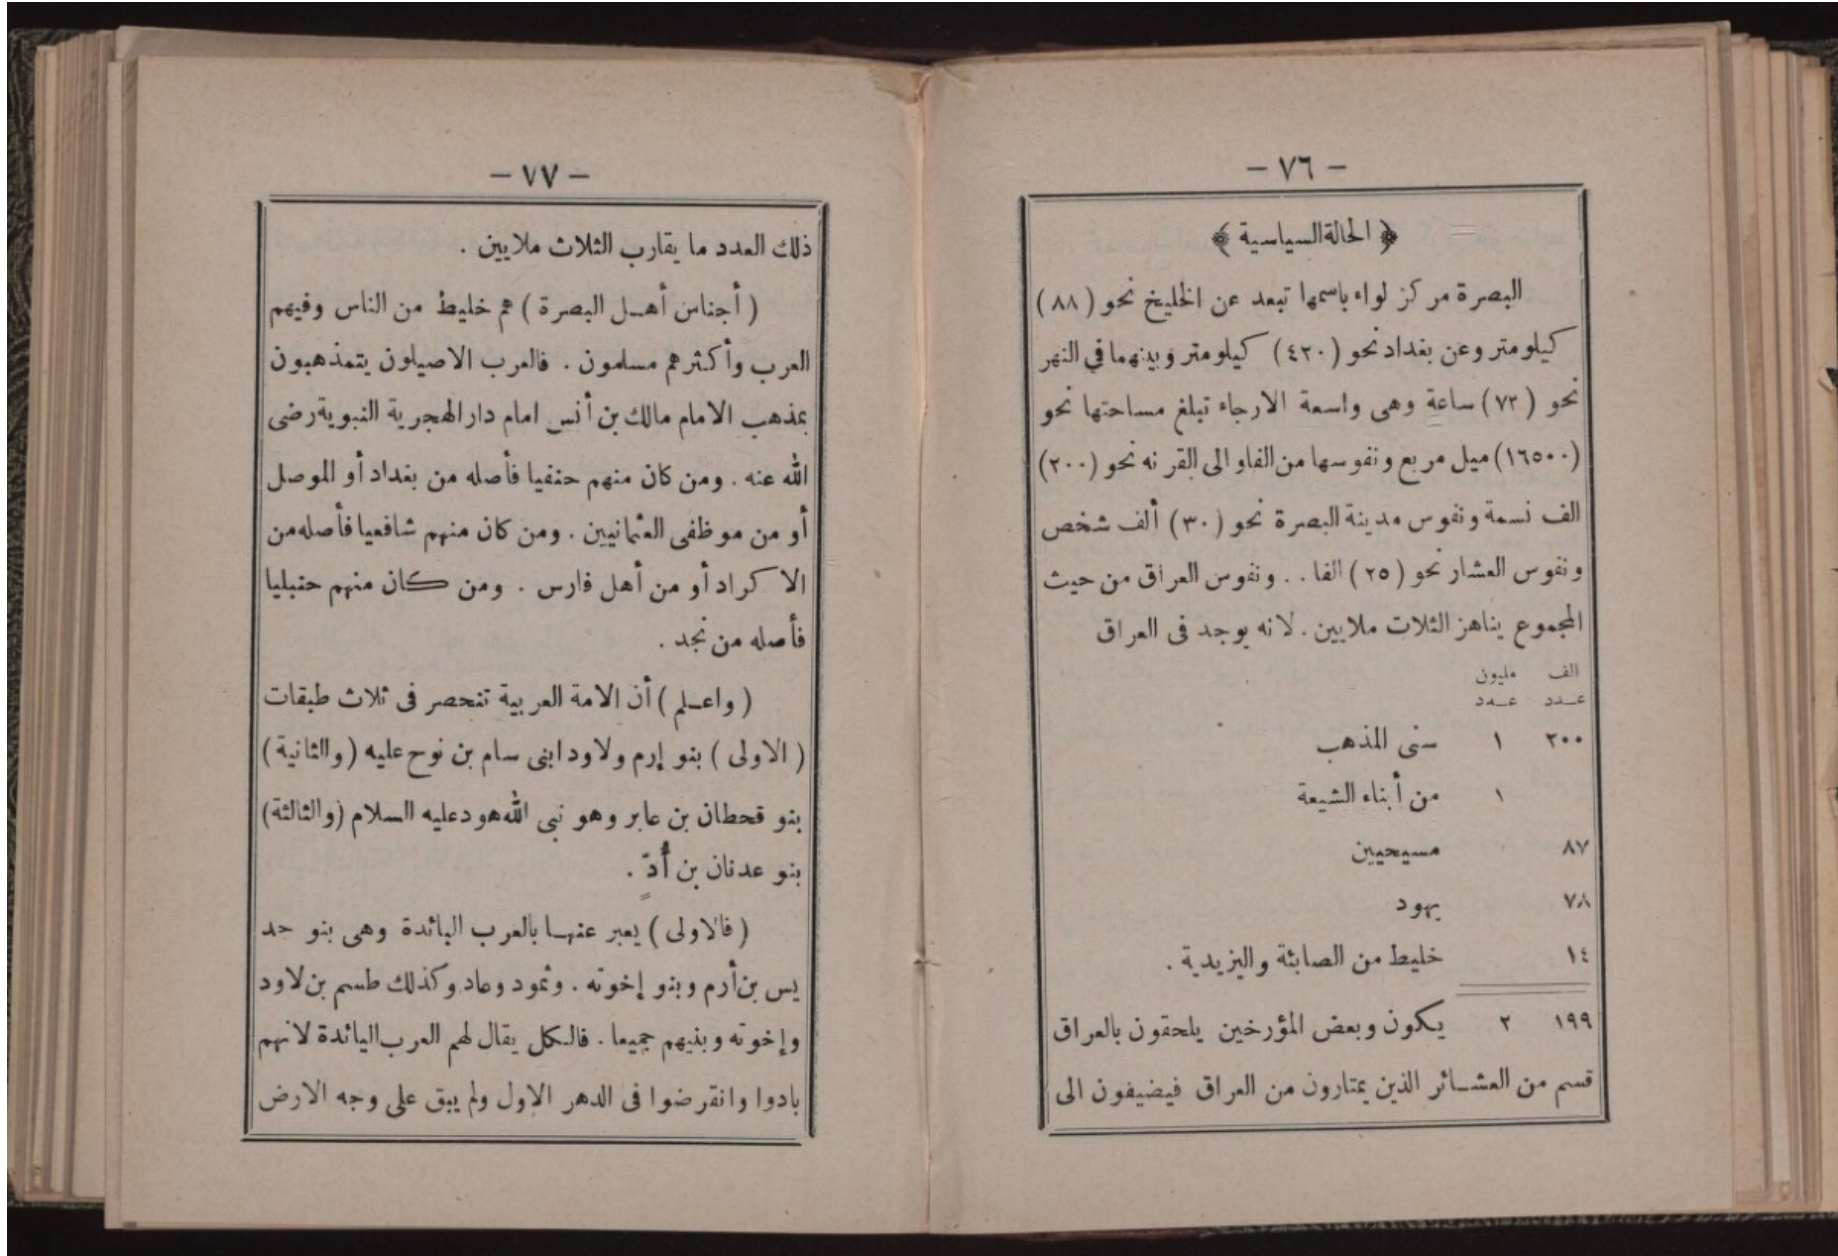 — ٧٦ —
﴿ الحالة السياسية ﴾
البصرة مركز لواء باسمها تبعد عن الخليخ نحو ( ٨٨ )
كيلو متر وعن بغداد نحو (٤٢٠) كيلو متر وبينهما في النهر
نحو (٧٢) ساعة وهى واسعة الارجاء تبلغ مساحتها نحو
(١٦٥٠٠) ميل مربع ونفوسها من الفاو الى القرنه نحو (٢٠٠)
الف نسمة ونفوس مدينة البصرة نحو (٣٠) ألف شخص
ونفوس العشار نحو (٢٥) الفا . . ونفوس العراق من حيث
المجموع يناهز الثلاث ملايين . لانه يوجد فى العراق
الف مليون
عـدد عـدد
٢٠٠ ١ سنى المذهب
١ من أبناء الشيعة
٨٧ مسيحيين
٧٨ يهود
١٤ خليط من الصابئة واليزيدية .
١٩٩ ٢ يكون وبعض المؤرخين يلحقون بالعراق
قسم من العشـائر الذين يمتارون من العراق فيضيفون الى
— ٧٧ —
ذلك العدد ما يقارب الثلاث ملايين .
( أجناس أهـل البصرة ) هم خليط من الناس وفيهم
العرب وأكثرهم مسلمون . فالعرب الاصيلون يتمذهبون
بمذهب الامام مالك بن أنس امام دار الهجرية النبوية رضى
الله عنه . ومن كان منهم حنفيا فأصله من بغداد أو الموصل
أو من موظفى العثمانيين . ومن كان منهم شافعيا فأصله من
الاكراد أو من أهل فارس . ومن كان منهم حنبليا
فأصله من نجد .
( واعـلم ) أن الامة العربية تنحصر فى ثلاث طبقات
( الاولى ) بنو إرم ولاود ابنى سام بن نوح عليه (والثانية)
بنو قحطان بن عابر وهو نبى الله هود عليه السلام (والثالثة)
بنو عدنان بن أُدّ .
( فالاولى ) يعبر عنهـا بالعرب البائدة وهى بنو جد
يس بن أرم وبنو إخوته . وثمود وعاد وكذلك طسم بن لاود
وإخوته وبنيهم جميعا . فالكل يقال لهم العرب اليائدة لانهم
بادوا وانقرضوا فى الدهر الاول ولم يبق على وجه الارض